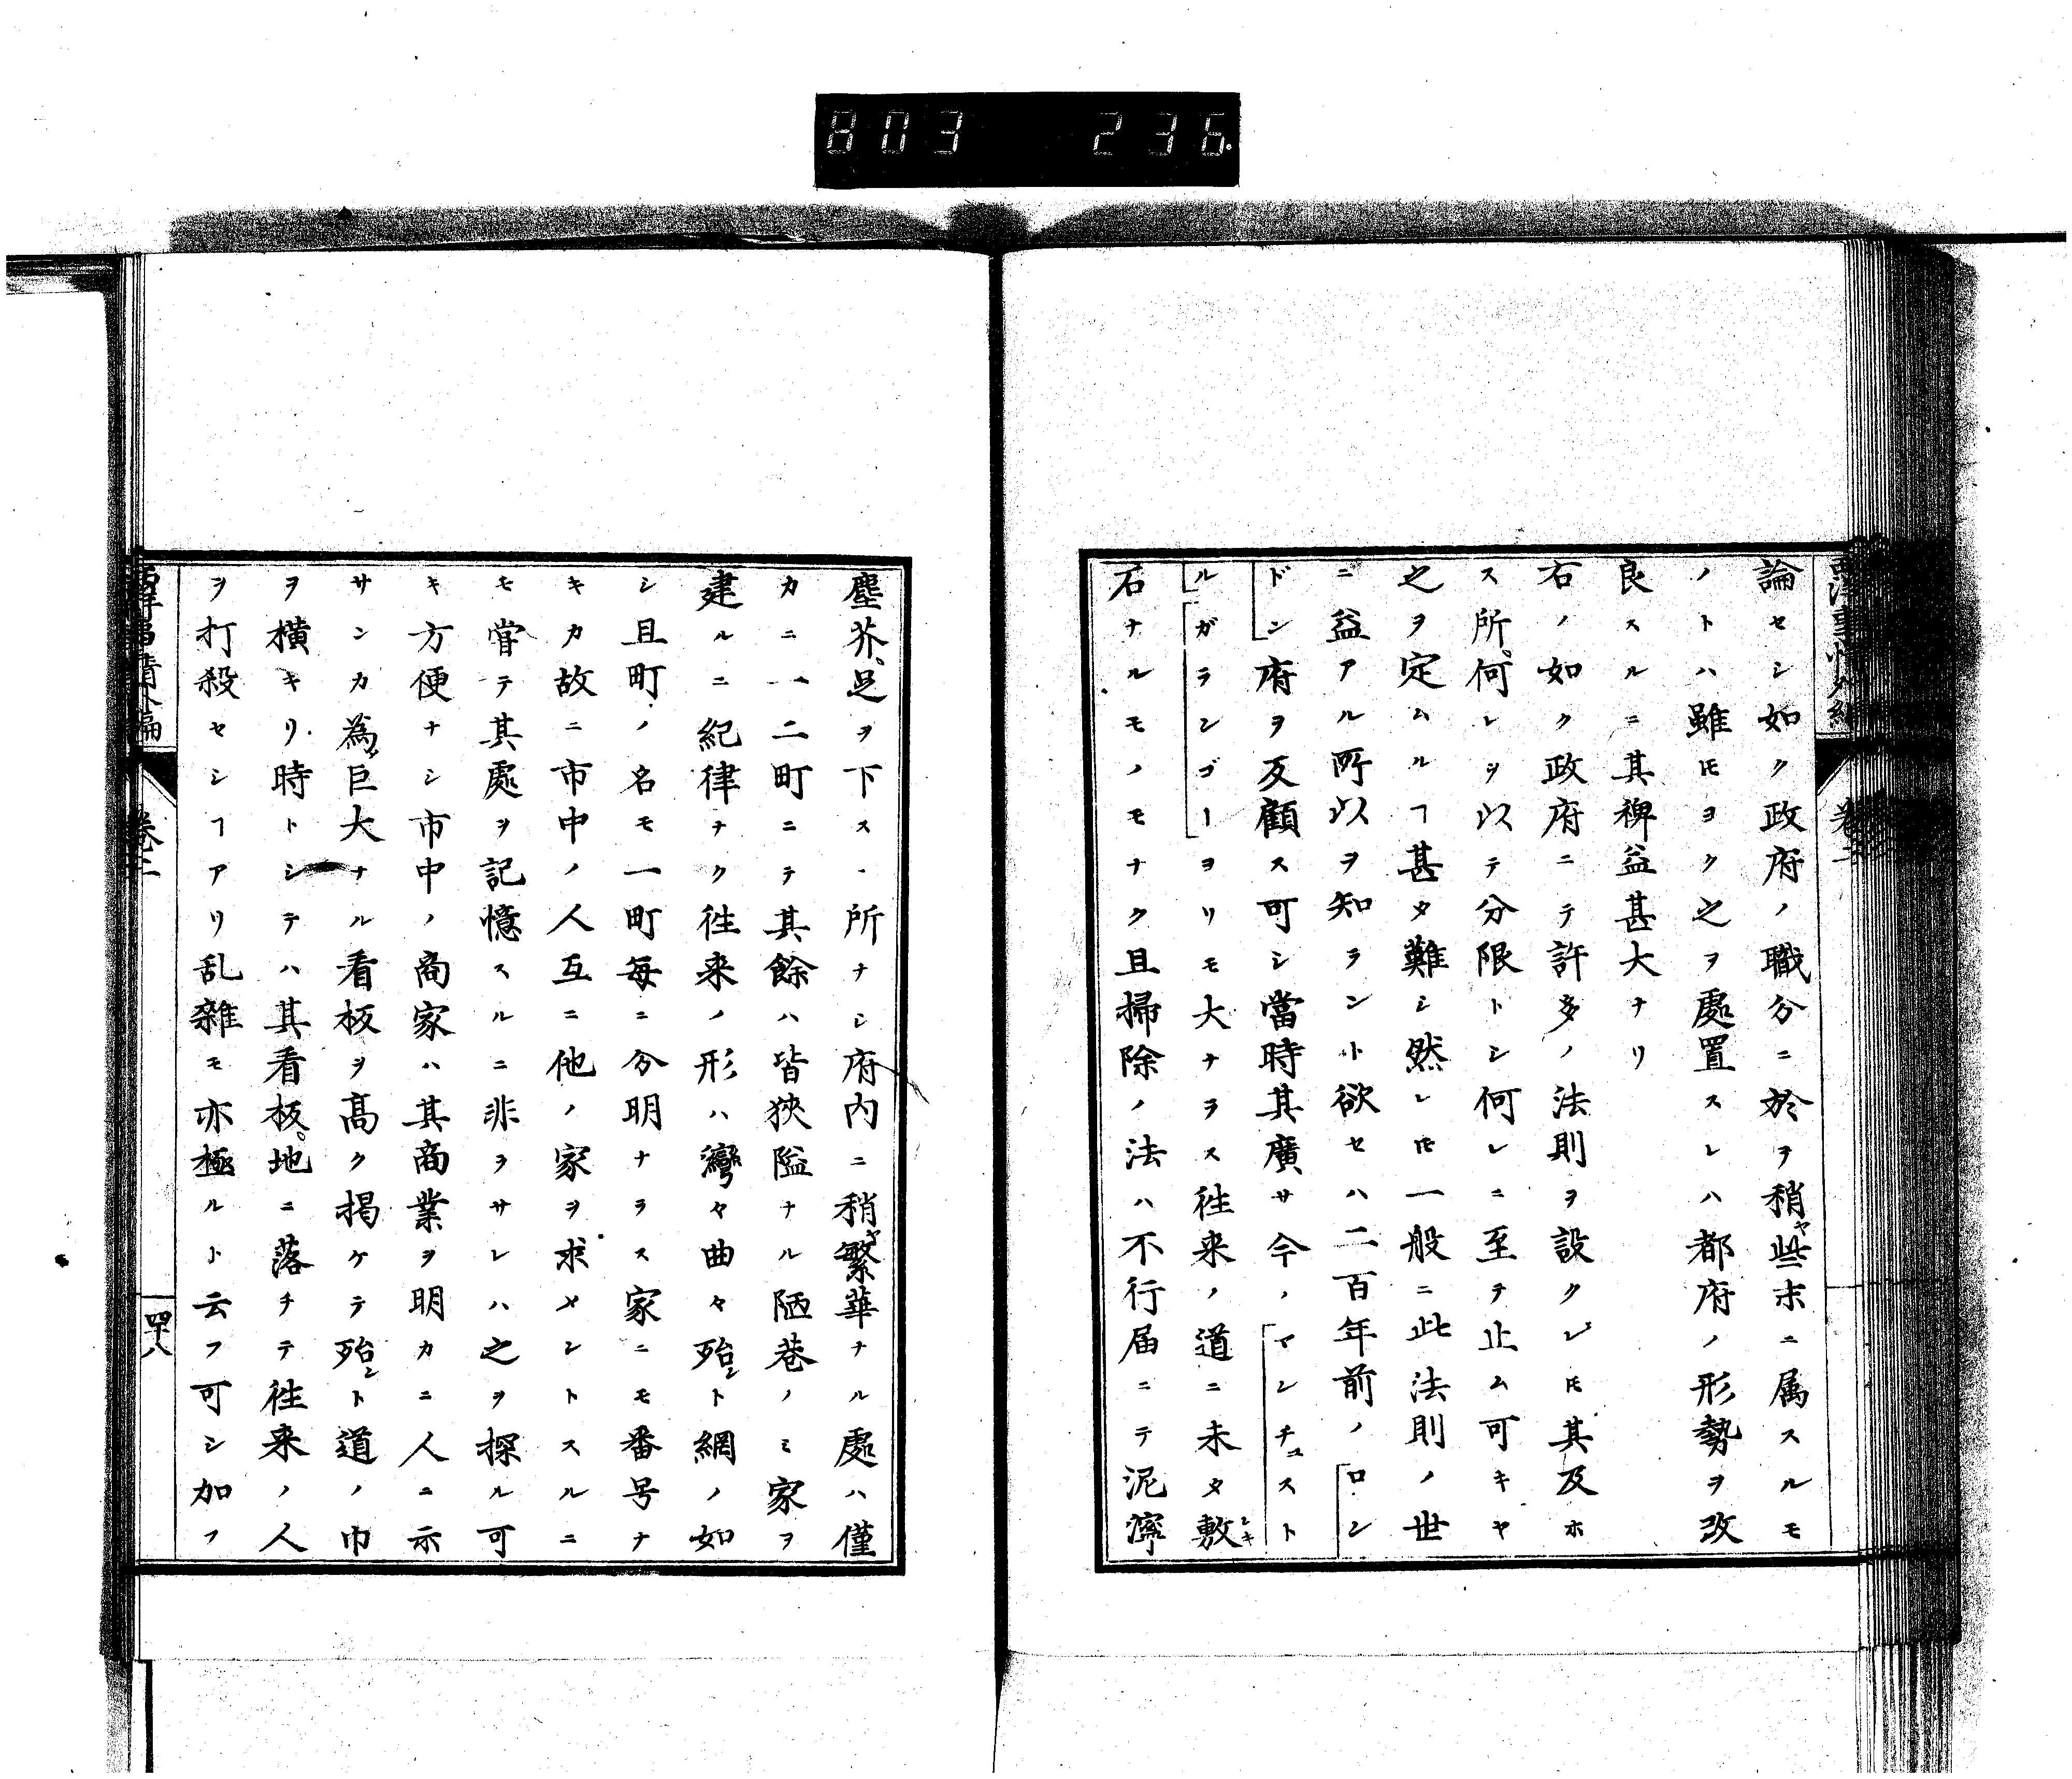 803 236
論セシ如ク政府ノ職分ニ於ヲ稍ヤ些末ニ属スルモ
ノトハ雖𪜈ヨク之ヲ處置スレハ都府ノ形勢ヲ改
良スルニ其稗益甚大ナリ
右ノ如ク政府ニテ許多ノ法則ヲ設クレ𪜈其及ホ
ス所何レヲ以テ分限トシ何レニ至テ止ム可キヤ
之ヲ定ムルヿ甚タ難シ然レ𪜈一般ニ此法則ノ世
ニ益アル所以ヲ知ラント欲セハ二百年前ノロン
ドン府ヲ反顧ス可シ當時其廣サ今ノマンチュスト
ルガランゴーヨリモ大ナラス徃来ノ道ニ未タ敷シキ
石ナルモノモナク且掃除ノ法ハ不行届ニテ泥濘
塵芥足ヲ下ス所ナシ府内ニ稍ヤ繁華ナル處ハ僅
カニ一二町ニテ其餘ハ皆狹隘ナル陋巷ノミ家ヲ
建ルニ紀律ナク徃来ノ形ハ灣々曲々殆ント網ノ如
シ且町ノ名モ一町毎ニ分明ナラス家ニモ番号ナ
キカ故ニ市中ノ人互ニ他ノ家ヲ求メントスルニ
モ甞テ其處ヲ記憶スルニ非ラサレハ之ヲ探ル可
キ方便ナシ市中ノ商家ハ其商業ヲ明カニ人ニ示
サンカ為メ巨大ナル看板ヲ髙ク揭ケテ殆ント道ノ巾
ヲ横キリ時トシテハ其看板地ニ落チテ徃来ノ人
ヲ打殺セシヿアリ乱雜モ亦極ルト云フ可シ加フ
西洋事情外編
卷二
四十八